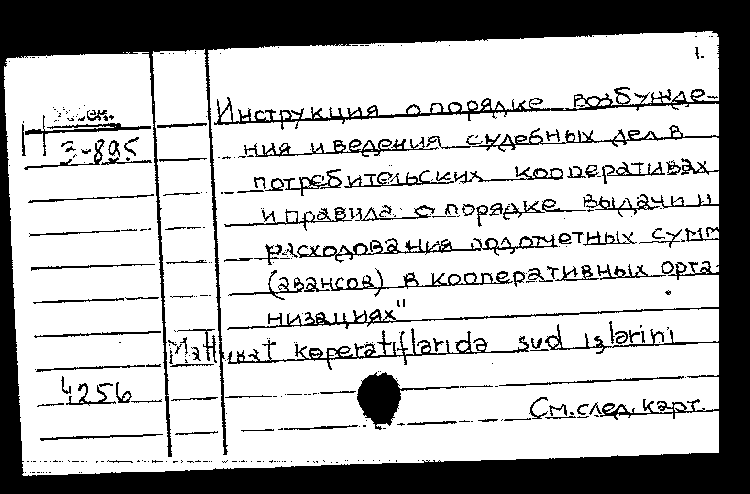 1.
Инструкция о порядке возбужде-
3-895
ния и ведения судебных дел в
потребительских кооперативах
и правила о порядке выдачи и
расходования подотчетных сумм
(авансов) в кооперативных орга-
низациях"
Matlubat koperatiflarida sud işlərini
4256
См. след. карт.